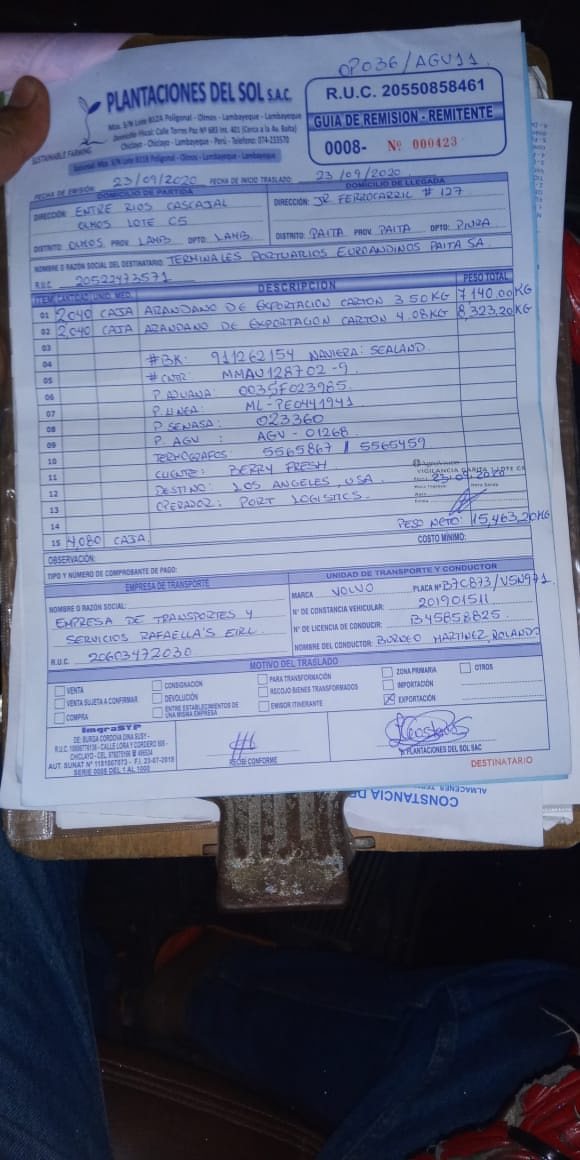 OP036/AGV11
PLANTACIONES DEL SOL S.A.C.
Mza. S/N Lote B12A Poligonal - Olmos - Lambayeque - Lambayeque
Domicilio Fiscal: Calle Torres Paz Nº 683 Int. 401 (Cerca a la Av. Balta)
Chiclayo - Chiclayo - Lambayeque - Perú - Teléfono: 074-233570
SUSTAINABLE FARMING
R.U.C. 20550858461
GUIA DE REMISION - REMITENTE
0008- Nº 000423
FECHA DE EMISIÓN: 23/09/2020 FECHA DE INICIO TRASLADO: 23/09/2020
DOMICILIO DE PARTIDA
DIRECCIÓN: ENTRE RIOS CASCAJAL
OLMOS LOTE C5
DISTRITO: OLMOS PROV. LAMB DPTO: LAMB
DOMICILIO DE LLEGADA
DIRECCIÓN: JR FERROCARRIL # 127
DISTRITO: PAITA PROV. PAITA DPTO: PIURA
NOMBRE O RAZÓN SOCIAL DEL DESTINATARIO: TERMINALES PORTUARIOS EUROANDINOS PAITA SA.
R.U.C. 20522473571
ITEM CANTIDAD UNID. MED. DESCRIPCIÓN PESO TOTAL
01 2,040 CAJA ARANDANO DE EXPORTACION CARTON 3.50KG 7,140.00KG
02 2,040 CAJA ARANDANO DE EXPORTACION CARTON 4.08KG 8,323,20KG
03
04 #BK: 911262154 NAVIERA: SEALAND.
05 #CNTR: MMAU128702-9
06 P. ADUANA: 0035F023985.
07 P. LINEA: ML-PE0441941
08 P. SENASA: 023360
09 P. AGV: AGV-01268
10 TERMOGRAFOS: 5565867 / 5565459
11 CLIENTE: BERRY FRESH
12 DESTINO: LOS ANGELES, USA.
13 OPERADOR: PORT LOGISTICS.
VIGILANCIA GARITA LOTE C5
23-09-2020
14
PESO NETO: 15,463,20KG
15 4,080 CAJA
COSTO MÍNIMO:
OBSERVACIÓN:
TIPO Y NÚMERO DE COMPROBANTE DE PAGO:
EMPRESA DE TRANSPORTE
NOMBRE O RAZÓN SOCIAL:
EMPRESA DE TRANSPORTES Y
SERVICIOS RAFAELLA'S EIRL.
R.U.C. 20603472030
UNIDAD DE TRANSPORTE Y CONDUCTOR
MARCA VOLVO PLACA Nº B7C873/V5N971
Nº DE CONSTANCIA VEHICULAR: 201901511
Nº DE LICENCIA DE CONDUCIR: B45858825
NOMBRE DEL CONDUCTOR: BURNEO MARTINEZ, ROLANDO
MOTIVO DEL TRASLADO
VENTA
VENTA SUJETA A CONFIRMAR
COMPRA
CONSIGNACIÓN
DEVOLUCIÓN
ENTRE ESTABLECIMIENTOS DE
UNA MISMA EMPRESA
PARA TRANSFORMACIÓN
RECOJO BIENES TRANSFORMADOS
EMISOR ITINERANTE
ZONA PRIMARIA
IMPORTACIÓN
EXPORTACIÓN
OTROS
ImgraSYP
DE: BURGA CORDOVA DINA SUSY -
CHICLAYO - CEL. 979075166
SERIE 0008 DEL 1 AL 1000
RECIBI CONFORME
p. PLANTACIONES DEL SOL SAC
DESTINATARIO
CONSTANCIA DE